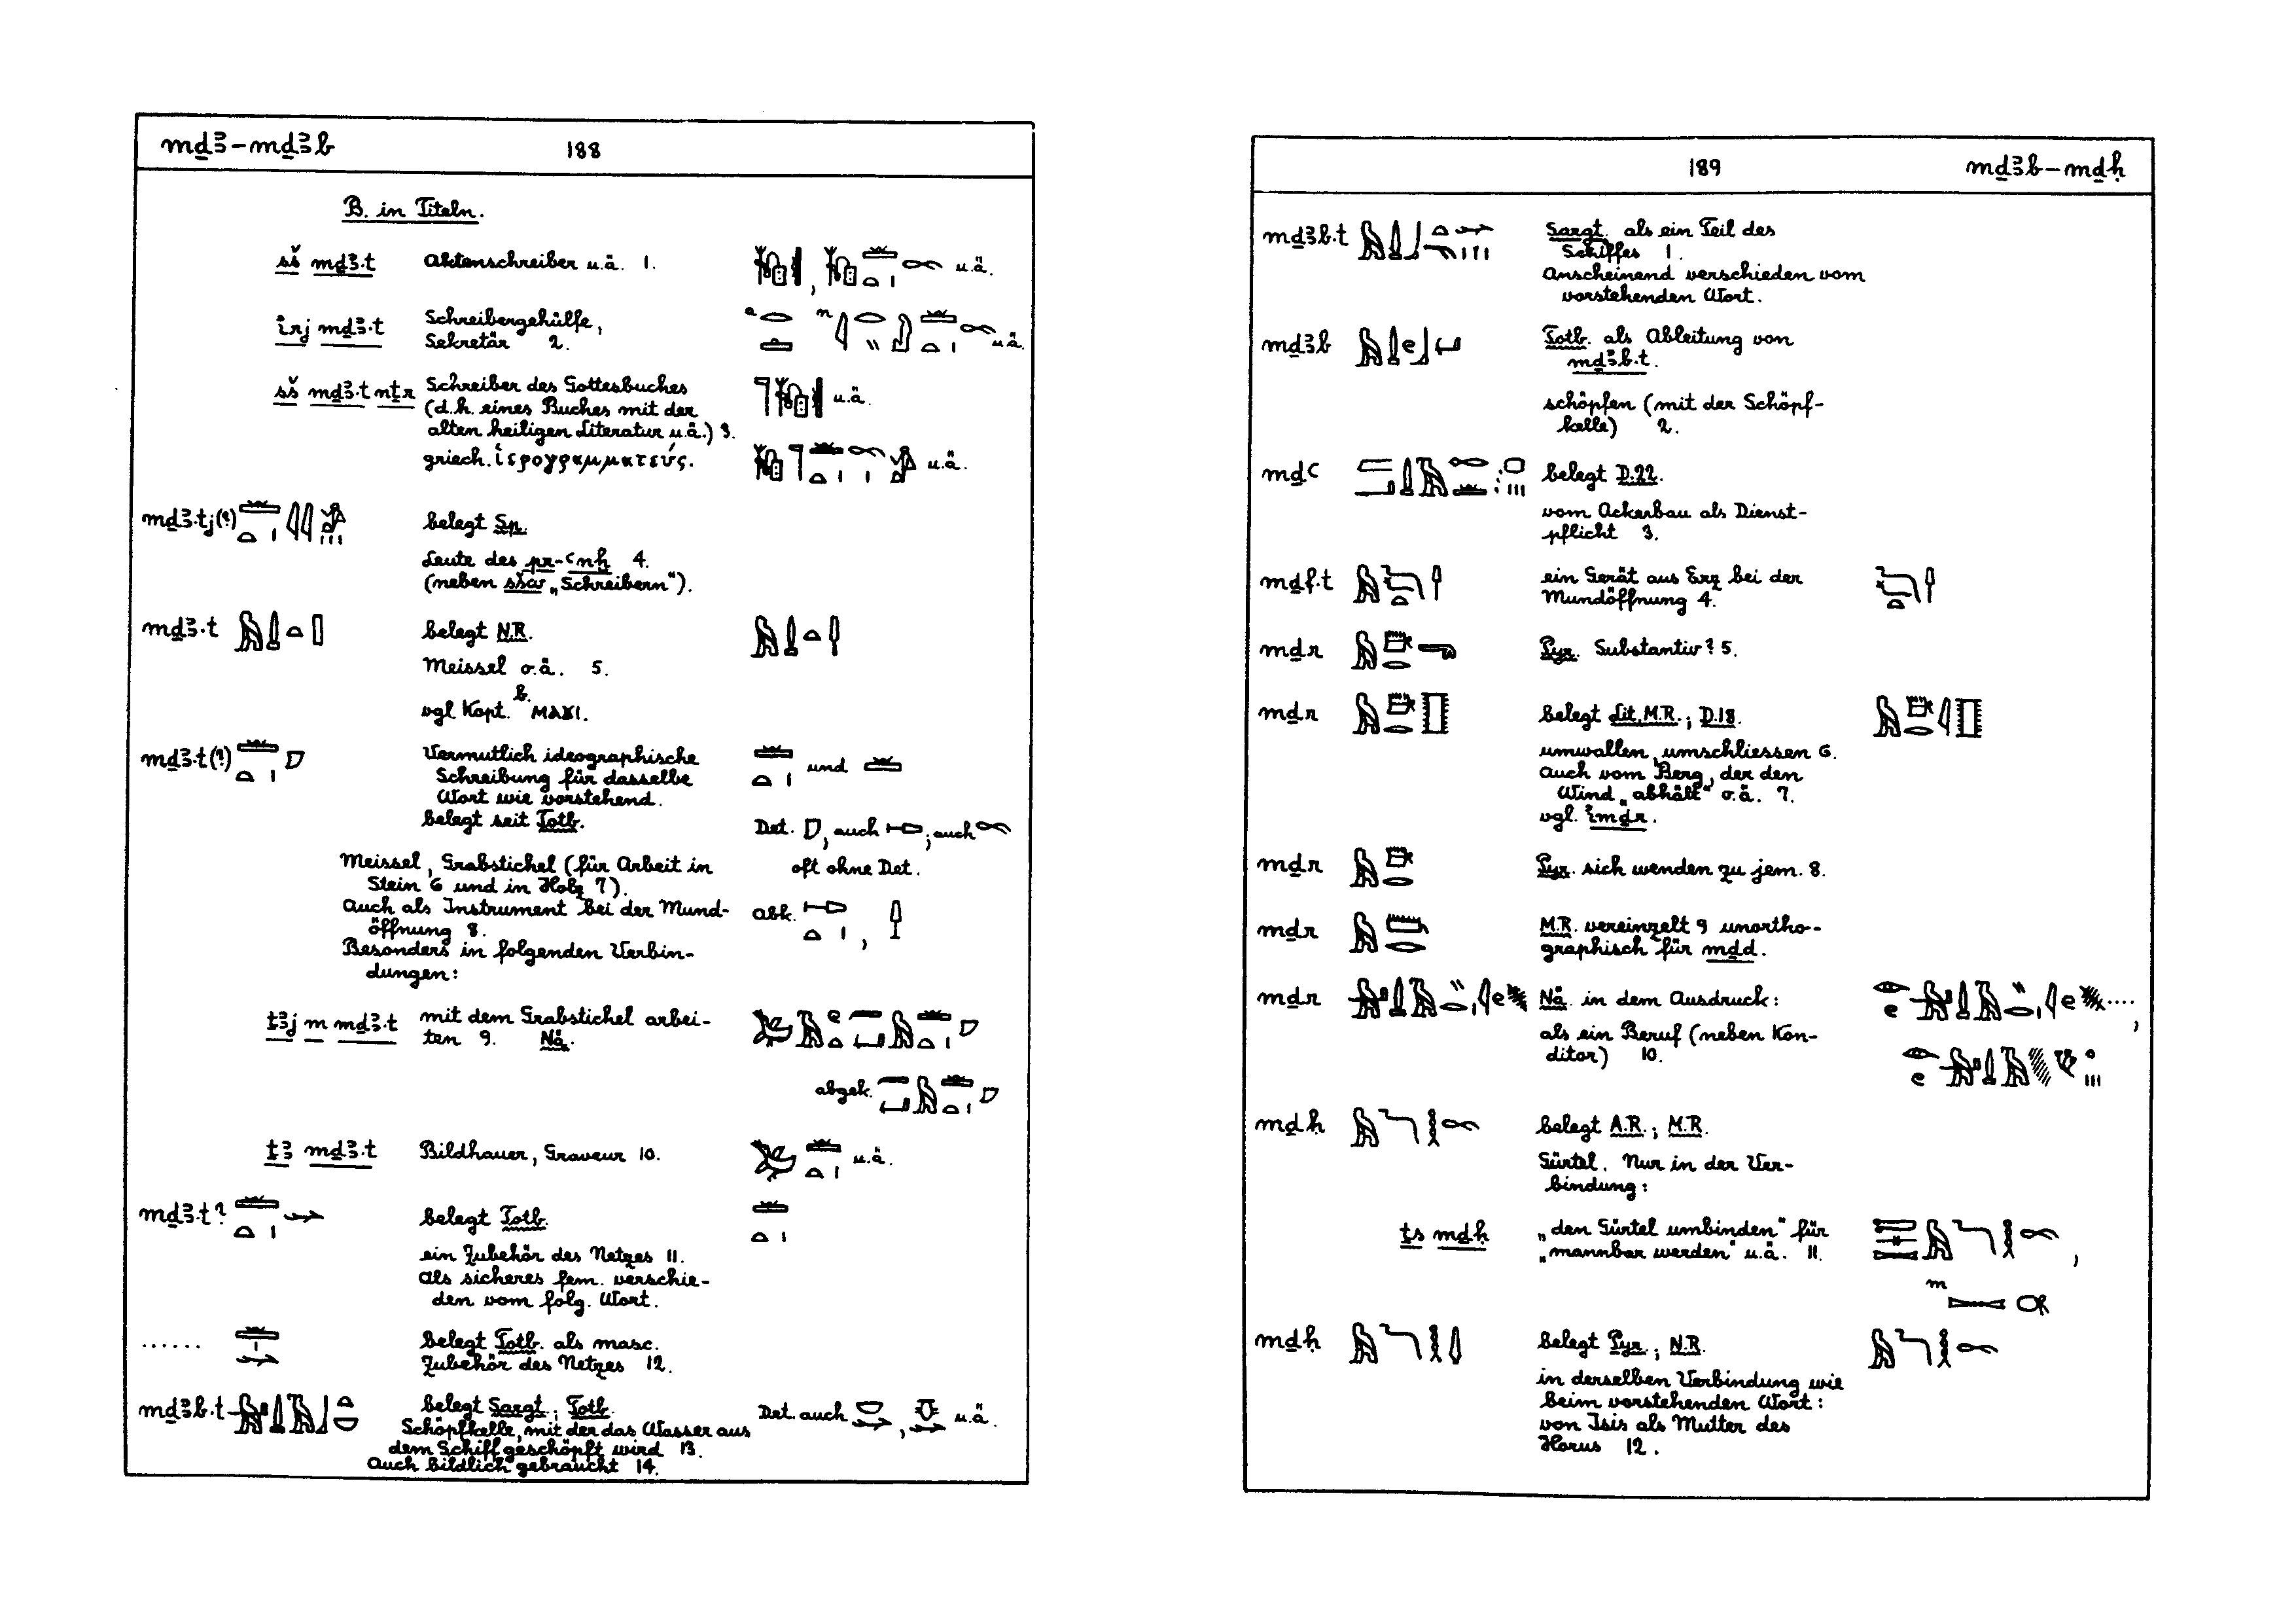 mḏꜣ–mḏꜣb 188
B. in Titeln.
sš mḏꜣ.t Aktenschreiber u.ä. 1. , u.ä.
irj mḏꜣ.t Schreibergehülfe, a n
Sekretär 2. u.ä.
sš mḏꜣ.t nṯr Schreiber des Gottesbuches
(d.h. eines Buches mit der u.ä.
alten heiligen Literatur u.ä.) 3.
griech. ἱερογραμματεύς. u.ä.
mḏꜣ.tj(?) belegt Sp.
Leute des pr-ꜥnḫ 4.
(neben sšw „Schreibern").
mḏꜣ.t belegt N.R.
Meissel o.ä. 5.
vgl. Kopt. b. ⲙⲁϫⲓ.
mḏꜣ.t(?) Vermutlich ideographische
Schreibung für dasselbe und
Wort wie vorstehend.
belegt seit Totb. Det. , auch ; auch
Meissel, Grabstichel (für Arbeit in oft ohne Det.
Stein 6 und in Holz 7).
Auch als Instrument bei der Mund- abk. ,
öffnung 8.
Besonders in folgenden Verbin-
dungen:
ṯꜣj m mḏꜣ.t mit dem Grabstichel arbei-
ten 9. Nä.
abgek.
ṯꜣ mḏꜣ.t Bildhauer, Graveur 10. u.ä.
mḏꜣ.t? belegt Totb.
ein Zubehör des Netzes 11.
als sicheres fem. verschie-
den vom folg. Wort.
...... belegt Totb. als masc.
Zubehör des Netzes 12.
mḏꜣb.t belegt Sargt.; Totb. Det. auch , u.ä.
Schöpfkelle, mit der das Wasser aus
dem Schiff geschöpft wird 13.
Auch bildlich gebraucht 14.
189 mḏꜣb–mḏḥ
mḏꜣb.t Sargt. als ein Teil des
Schiffes 1.
Anscheinend verschieden vom
vorstehenden Wort.
mḏꜣb Totb. als Ableitung von
mḏꜣb.t.
schöpfen (mit der Schöpf-
kelle) 2.
mḏꜥ belegt D.22.
vom Ackerbau als Dienst-
pflicht 3.
mḏf.t ein Gerät aus Erz bei der
Mundöffnung 4.
mḏr Pyr. Substantiv? 5.
mḏr belegt Lit. M.R.; D.18.
umwallen, umschliessen 6.
auch vom Berg, der den
Wind „abhält" o.ä. 7.
vgl. imḏr.
mḏr Pyr. sich wenden zu jem. 8.
mḏr M.R. vereinzelt 9 unortho-
graphisch für mḏd.
mḏr Nä. in dem Ausdruck: ....,
als ein Beruf (neben Kon-
ditor) 10.
mḏḥ belegt A.R.; M.R.
Gürtel. Nur in der Ver-
bindung:
ṯs mḏḥ „den Gürtel umbinden" für
„mannbar werden" u.ä. 11. ,
m
mḏḥ belegt Pyr.; N.R.
in derselben Verbindung wie
beim vorstehenden Wort:
von Isis als Mutter des
Horus 12.